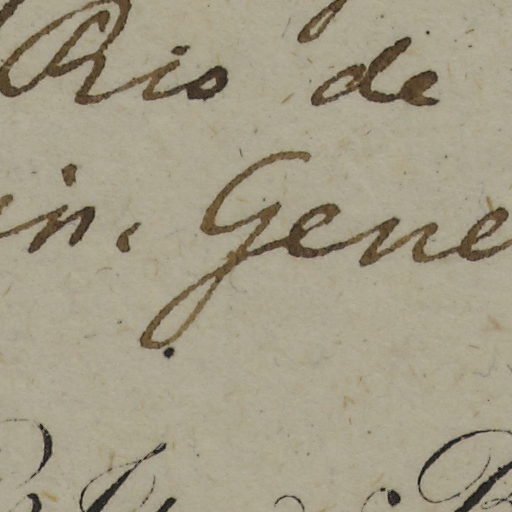 Rio de
in. Gene